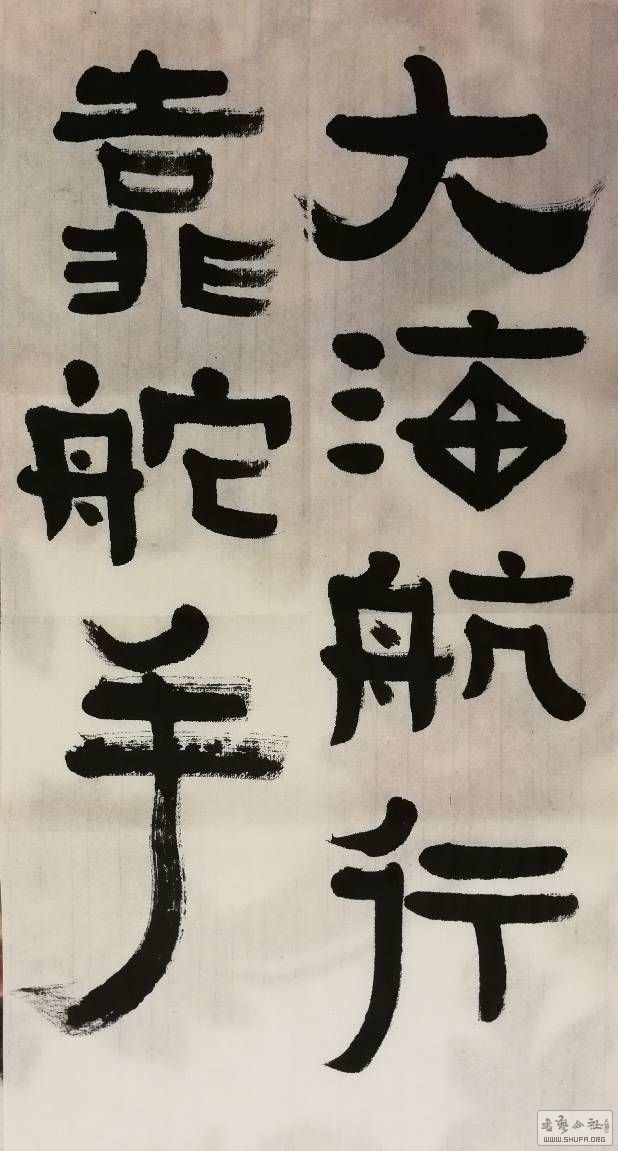 大海航行
靠舵手
WWW.SHUFA.ORG